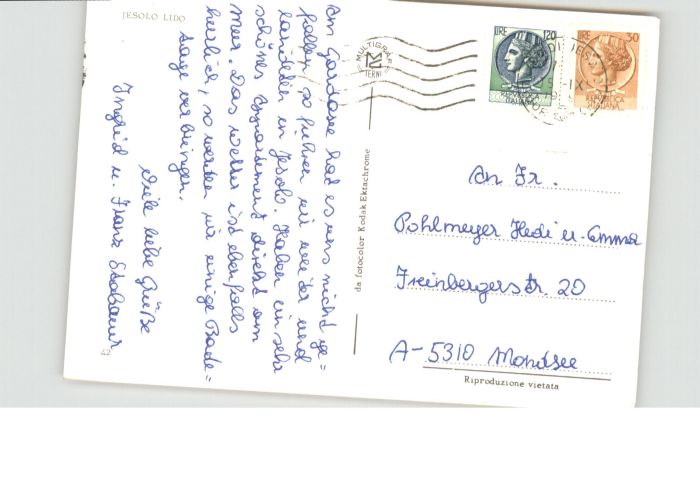 JESOLO LIDO
Am Gardasee hat es uns nicht ge=
fallen, so fuhren wir weiter und
landeten in Jesolo. Haben ein sehr
schönes Appartement direkt am
Meer. Das Wetter ist ebenfalls
herrlich, so werden wir einige Bade=
tage verbringen.
Viele liebe Grüße
Ingrid u. Franz
42
da fotocolor Kodak Ektachrome
MULTIGRAF
TERNI
LIRE 120
REPUBBLICA
ITALIANA
LIRE 30
REPUBBLICA
ITALIANA
An Fr.
Pohlmeyer Hedi u. Emma
Freinbergerstr. 20
A-5310 Mondsee
Riproduzione vietata